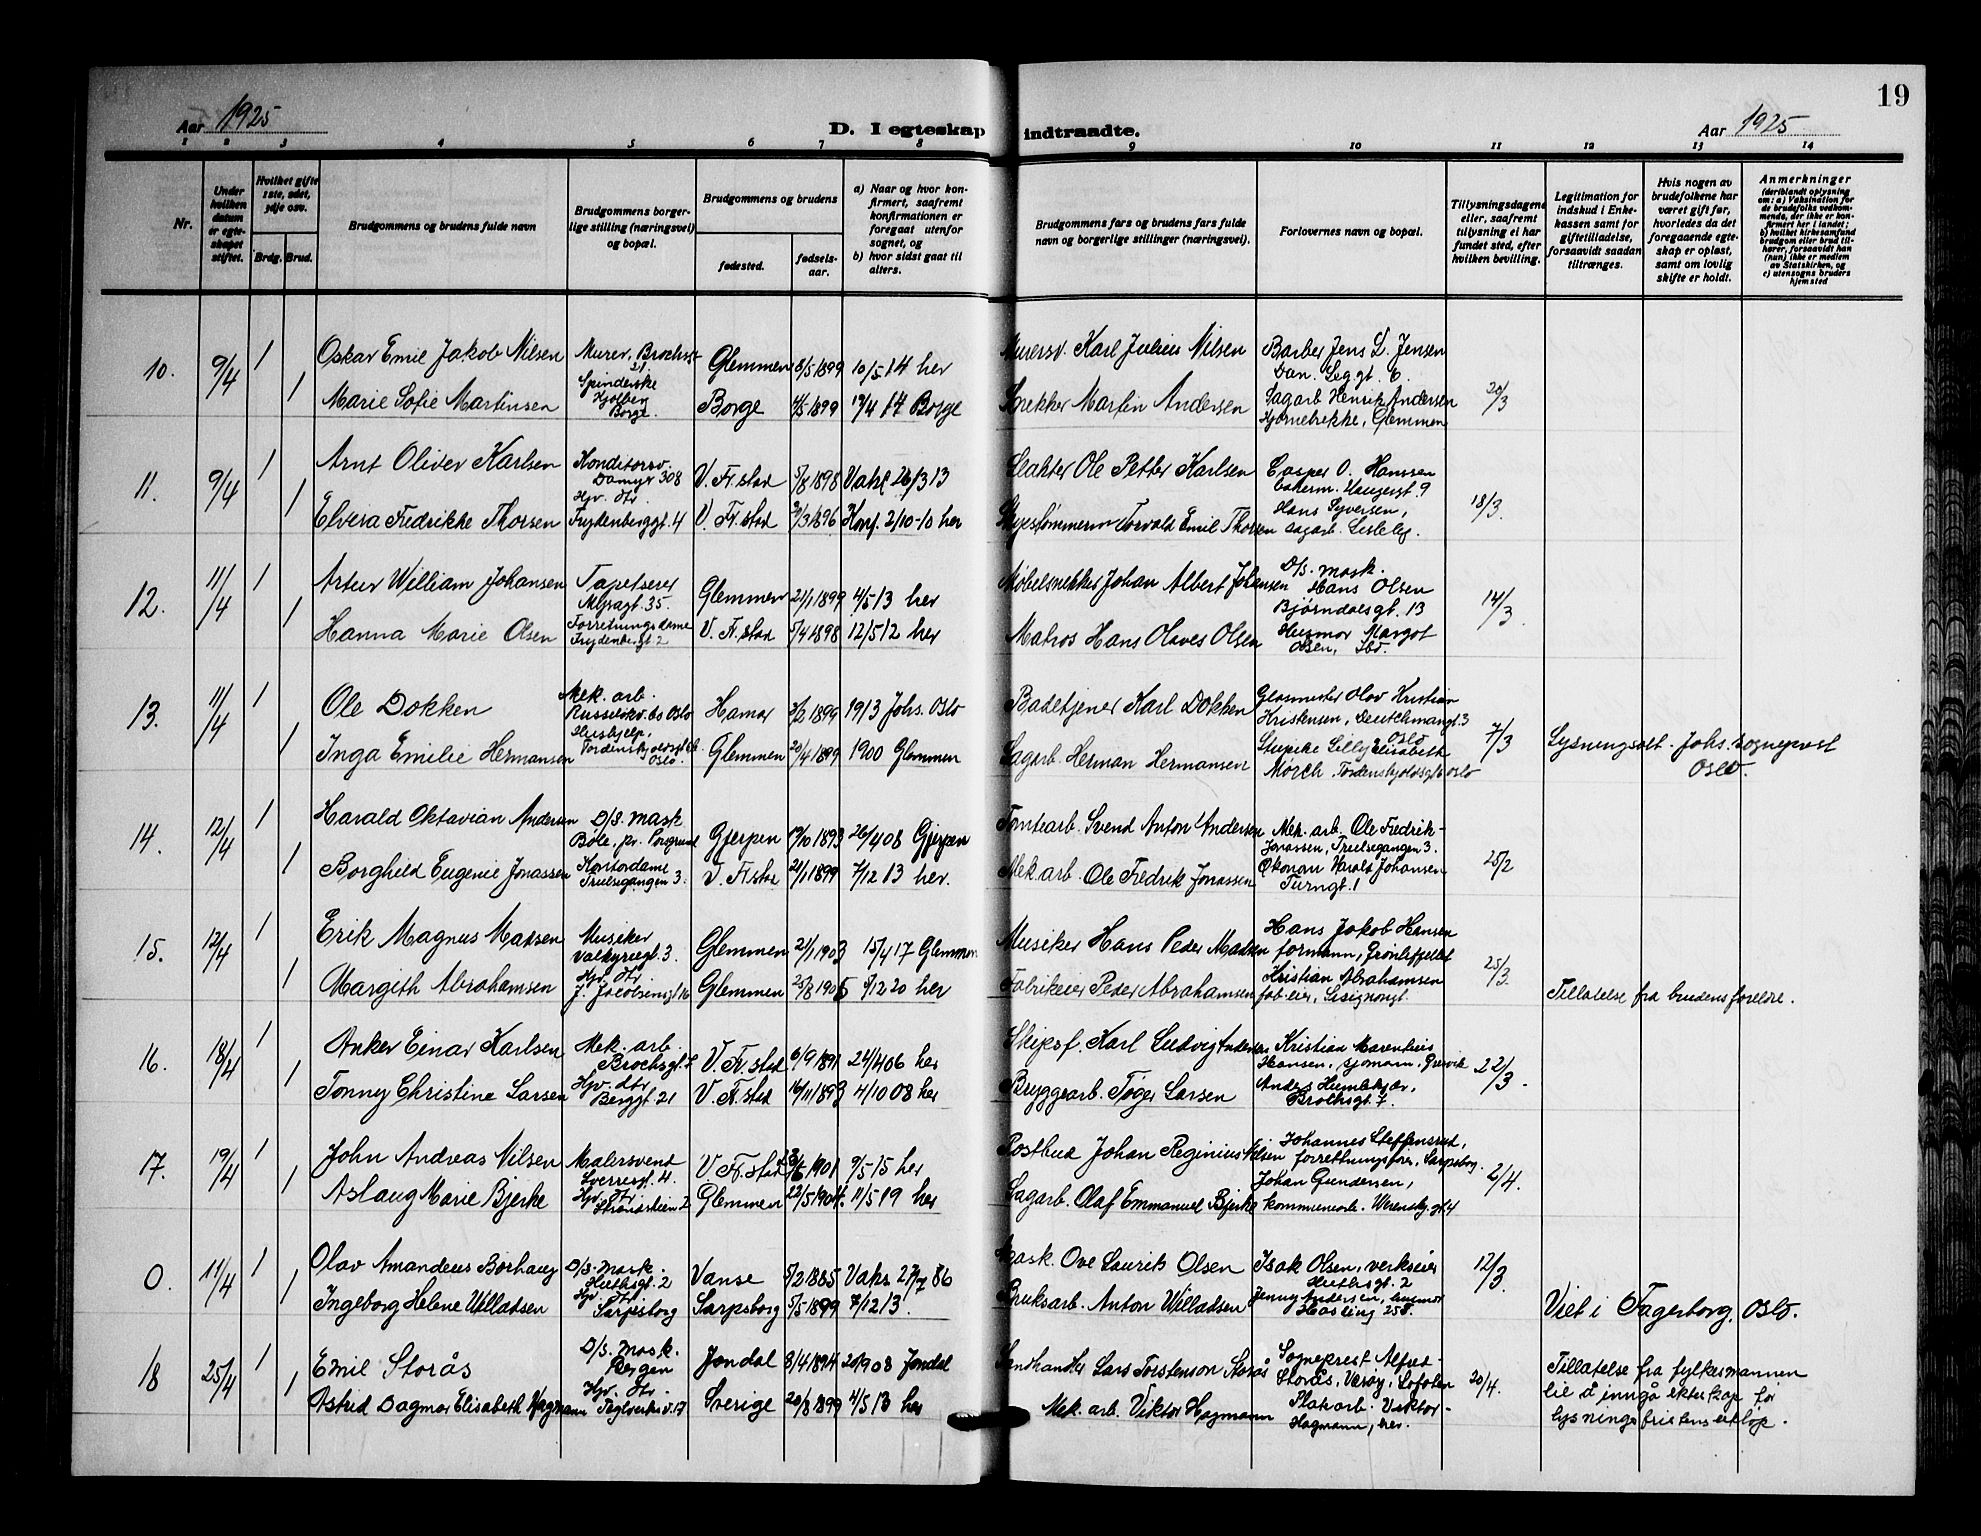 19
Aar 1925
D. I egteskap indtraadte.
Aar 1925
1 2 3 4 5 6 7 8 9 10 11 12 13 14
Nr.
Under hvilken datum er egteskapet stiftet.
Hvilket gifte 1ste, 2det, 3dje osv.
Brdg. Brud.
Brudgommens og brudens fulde navn
Brudgommens borgerlige stilling (næringsvei) og bopæl.
Brudgommens og brudens
fødested.
fødselsaar.
a) Naar og hvor konfirmert, saafremt konfirmationen er foregaat utenfor sognet, og
b) hvor sidst gaat til alters.
Brudgommens fars og brudens fars fulde navn og borgerlige stillinger (næringsvei).
Forlovernes navn og bopæl.
Tillysningsdagene eller, saafremt tillysning ei har fundet sted, efter hvilken bevilling.
Legitimation for indskud i Enkekassen samt for giftetilladelse, forsaavidt saadan tiltrænges.
Hvis nogen av brudefolkene har været gift før, hvorledes da det foregaaende egteskap er opløst, samt om lovlig skifte er holdt.
Anmerkninger
(deriblandt oplysning om: a) Vaksination for de brudefolks vedkommende, der ikke er konfirmert her i landet; b) hvilket kirkesamfund brudgom eller brud tilhører, forsaavidt han (hun) ikke er medlem av Statskirken, og c) utensogns bruders hjemsted
10. 9/4 1 Oskar Emil Jakob Nilsen Murer, Brochsgt Glemmen 8/5 1899 10/5 14 her Murersv. Karl Julius Nilsen Barber Jens L. Jensen
Dan. Leg.gt. 6.
1 Marie Sofie Martinsen Spinderske Hjølben Borge. Borge 4/5 1899 19/4 14 Borge Snekker Martin Andersen Sagarb Henrik Andersen
Hjørnebekke, Glemmen 20/3
11. 9/4 1 Arnt Oliver Karlsen Konditorsv. Damyr 308 V. Fr.stad 5/8 1898 Vaks 26/3 13 Slakter Ole Petter Karlsen Casper O. Hanssen
1 Elvera Fredrikke Thorsen Hjv. dtr. Frydenberggt. 4 V. Fr.stad 1896 Konf. 2/10-10 her Skipstømmerm Torvald Emil Thorsen Hans Syversen,
sagarb. Lisleby. 18/3.
12. 11/4 1 Artur William Johansen Tapetserer Myragt. 35. Glemmen 21/1 1899 4/5 13 her Møbelsnekker Johan Albert Johansen D/s. mask. Hans Olsen
Bjørndalsgt. 13
1 Hanna Marie Olsen Forretningsdame Frydenb.gt 2 V. Fr.stad 5/4 1898 12/5 12 her Matros Hans Olaves Olsen Husmor Margot Olsen, Ibd. 14/3.
13. 11/4 1 Ole Dokken Mek. arb. Russeløkv. 60 Oslo Hamar 3/2 1899 1913 Johs. Oslo Badetjener Karl Dokken Glasmester Olav Kristian
Kristensen, Deichmangt. 3 Oslo
1 Inga Emilie Hermansen Hushjelp, Tordenskjoldsgt Oslo Glemmen 20/4 1899 1900 Glemmen Sagarb. Herman Hermansen Lilly Elisabeth
Mørch, Tordenskjoldsgt 6 Oslo 7/3 Lysningsatt. Johs. sogneprest Oslo.
14. 12/4 1 Harald Oktavian Andersen D/S. mask Bøle, pr. Porsgrund Gjerpen 19/10 1893 26/4 08 Gjerpen Tomtarb. Svend Anton Andersen Mek. arb. Ole Fredrik
Jonassen, Truelsegangen 3.
1 Borghild Eugenie Jonassen Kontordame Truelsegangen 3. V. Fr.stad 21/1 1899 7/12 13 her. Mek arb. Ole Fredrik Jonassen Økonom Harald Johansen
Turngt. 1 25/2
15. 12/4 1 Erik Magnus Madsen Musiker Valkyriegt. 3. Glemmen 21/1 1903 15/4 17 Glemmen Musiker Hans Peder Madsen Hans Jakob Hansen
formann, Grønlifjellet
1 Margith Abrahamsen Hjv. dtr. J. Jacobsensgt 16 Glemmen 25/8 1905 12 20 her Fabrikeier Peder Abrahamsen Kristian Abrahamsen
fab.eier, 25/3. Tillatelse fra brudens foreldre.
16. 18/4 1 Anker Einar Karlsen Mek. arb. Brochsgt. 7 V. Fr.stad 6/9 1891 24/4 06 her Skipsf. Karl Ludvig Andersen Kristian Marenius
Hansen, sjømann, Gresvik
1 Tonny Christine Larsen Hjv. dtr. Berggt. 21 V. Fr.stad 16/11 1893 4/10 08 her Bryggearb. Tøger Larsen Anders Humlekjær,
Brochsgt. 7. 22/3.
17. 19/4 1 John Andreas Nilsen Malersvend Sverresgt. 4. V. Fr.stad 1901 9/5 15 her Postbud Johan Reginius Nilsen Johannes Steffensrud,
forretningsfører, Sarpsborg.
1 Aslaug Marie Bjerke Hjv. dtr. Strandstien 2 Glemmen 22/5 1904. 11/5 19 her Sagarb. Olaf Emmanuel Bjerke Johan Gundersen,
kommunearb. Werenskj.gt. 4 2/4.
0. 11/4 1 Olav Amandeus Borhaug D/s. mask. Huthsgt. 2 Vanse 5/2 1885 Vaks 27/7 86 Mask. Ove Laurits Olsen Isak Olsen, verkseier
Huthsgt. 2
1 Ingeborg Helene Willadsen Hjv. dtr. Sarpsborg Sarpsborg 5/5 1899 7/12 13. Bruksarb. Anton Willadsen Jenny Andersen, husmor
Hasling 258. 12/3. Viet i Fagerborg, Oslo.
18 25/4 1 Emil Storås D/s. mask. Bergen Jondal 8/4 1894 20/9 08 Jondal Landhandler Lars Torstenson Storås Sogneprest Alfred
Storås, Værøy, Lofoten
1 Astrid Dagmar Elisabeth Hagmann Hjv. dtr. Teglverksv. 17 Sverige 20/8 1899 4/5 13 her Mek. arb. Viktor Hagmann Platearb. Viktor
Hagmann, her. 20/4. Tillatelse fra fylkesmannen
til å inngå ekteskap før
lysningsfristens utløp.